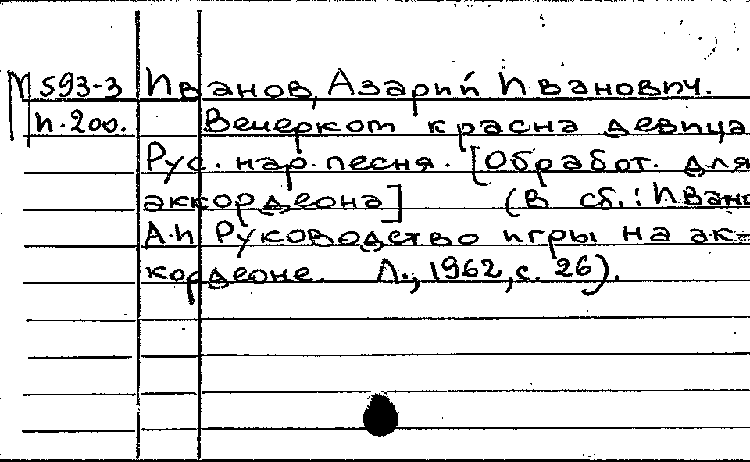 М 593-3 Иванов, Азарий Иванович.
п.200. Вечерком красна девица
Рус. нар. песня. [Обработ. для
аккордеона] (В сб.: Ивано
А.И Руководство игры на ак-
кордеоне. Л., 1962, с. 26).